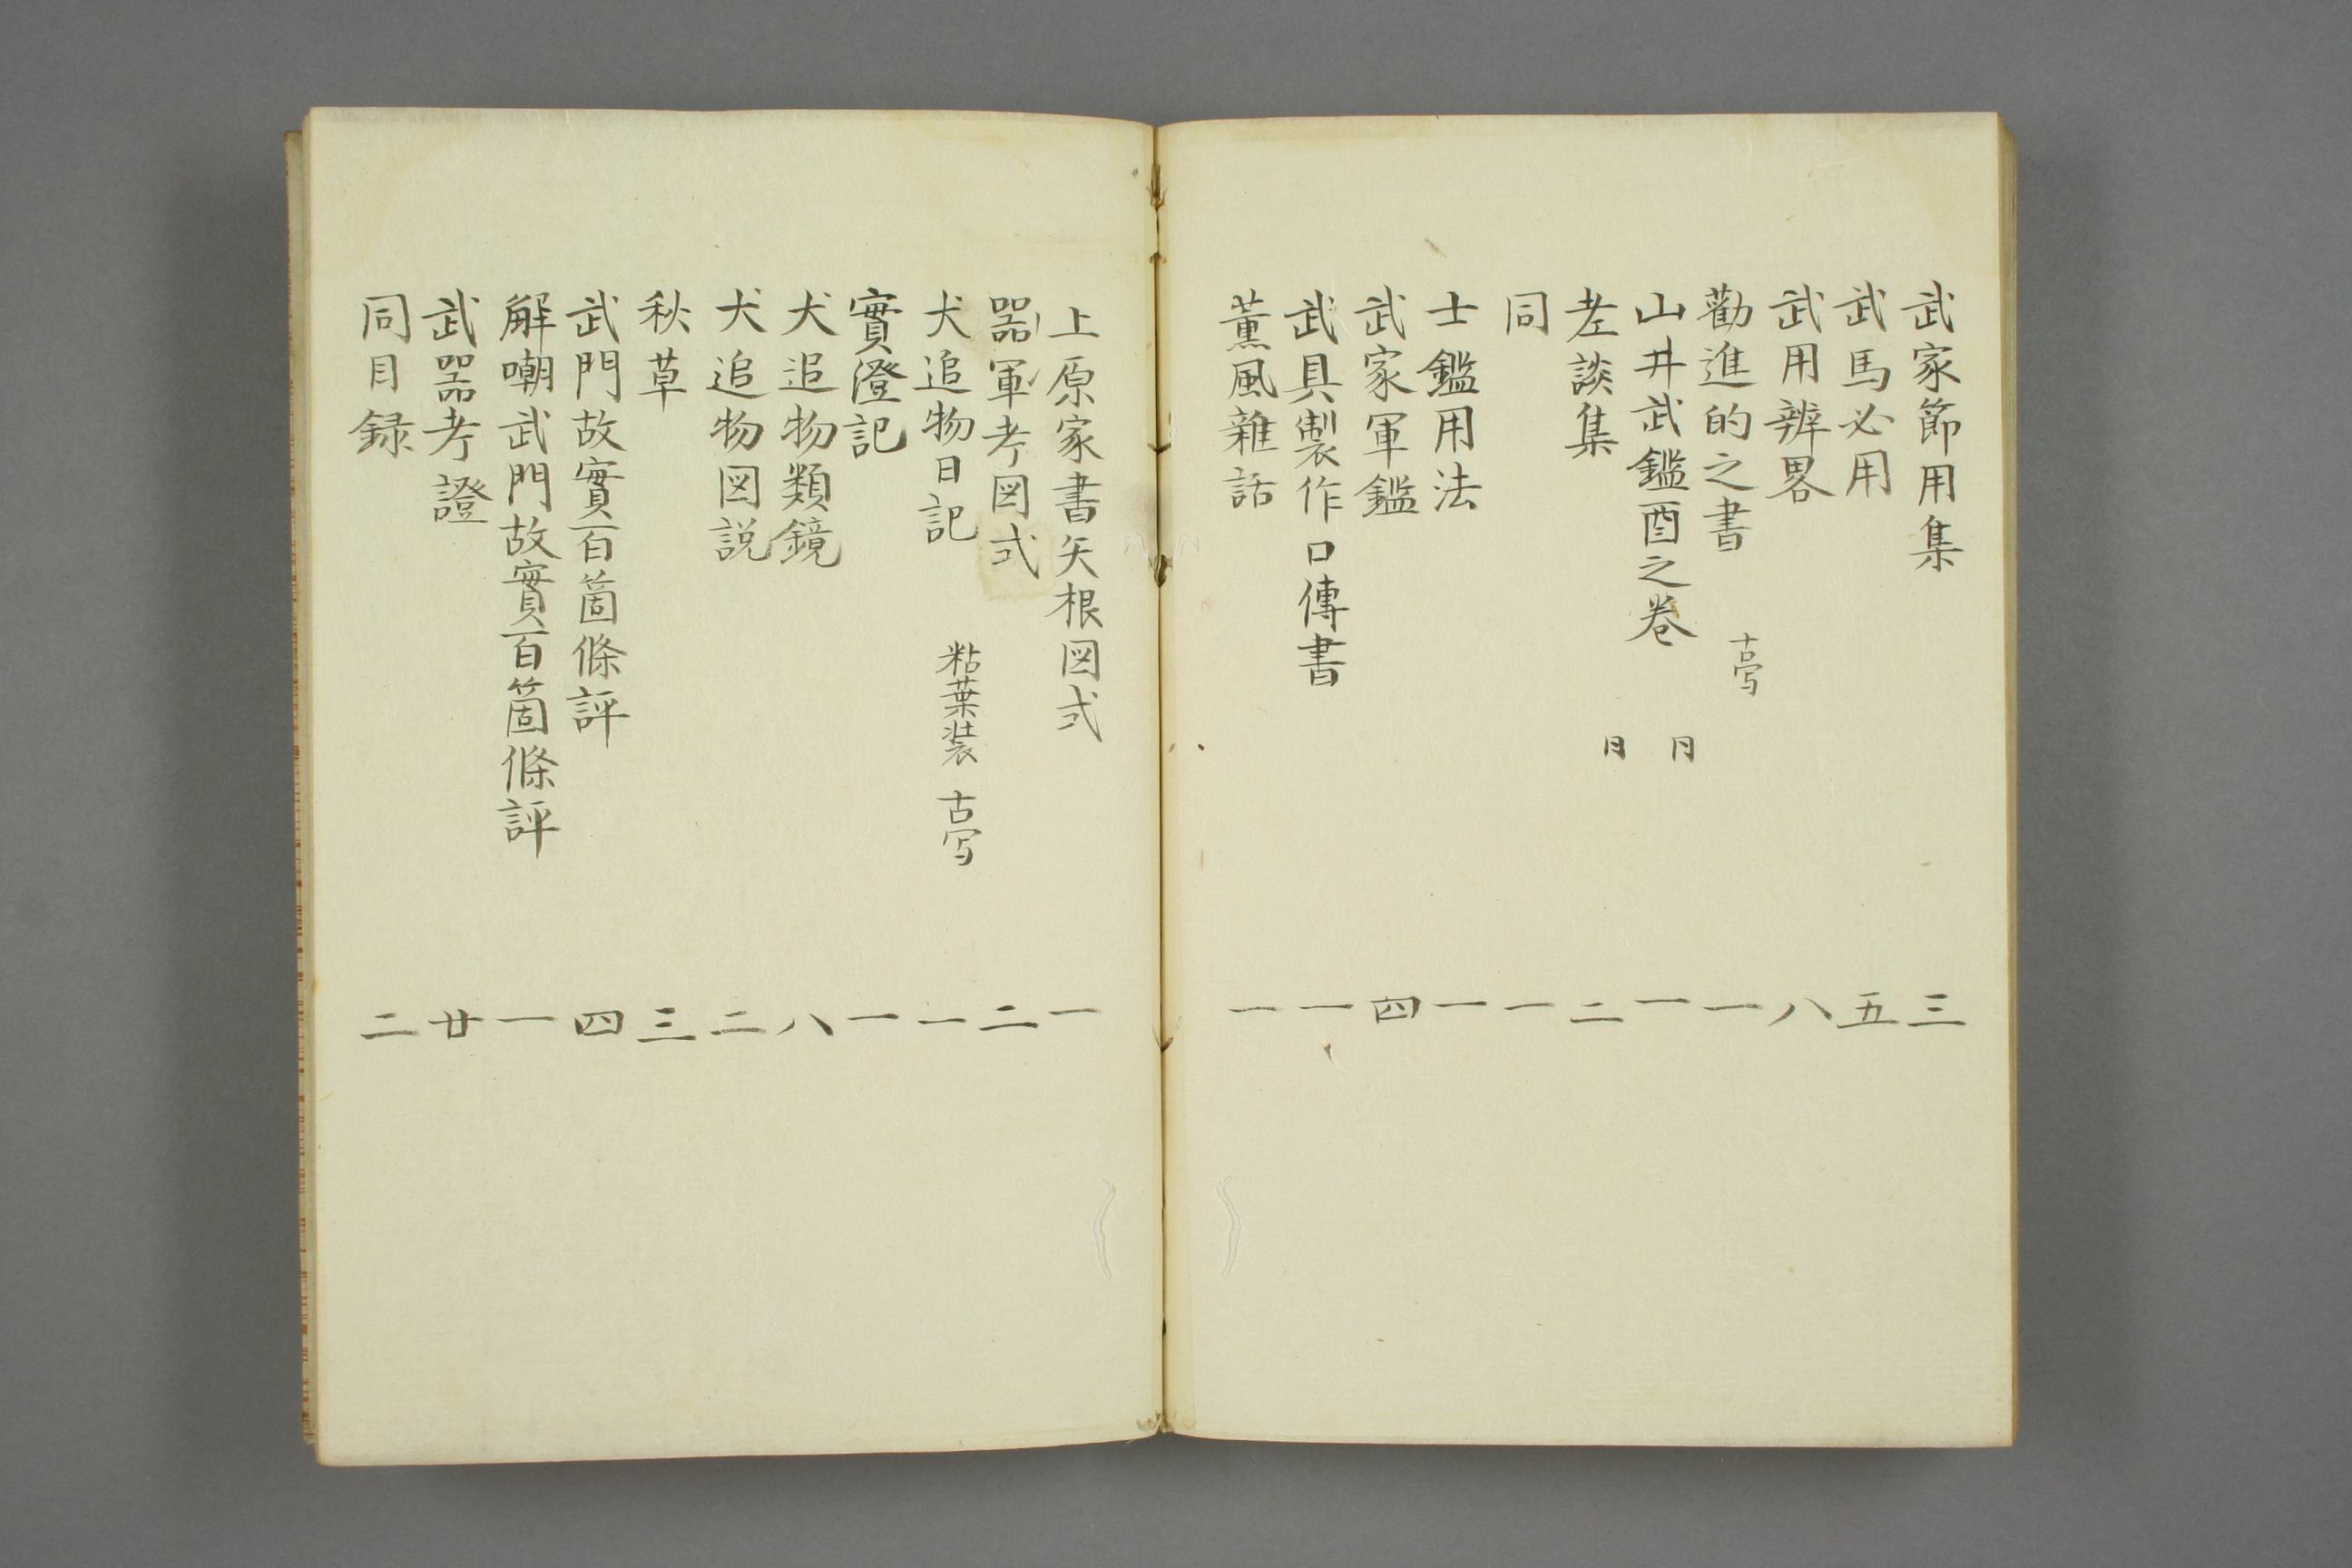 武家節用集 三
武馬必用 五
武用辨畧 八
勸進的之書 古写 一
山井武鑑酉之巻 同 一
老談集 同 二
同 一
士鑑用法 一
武家軍鑑 四
武具製作口傳書 一
薫風雜話 一
上原家書矢根図式 一
器軍考図式 二
犬追物日記 粘葉装 古写 一
實澄記 一
犬追物類鏡 八
犬追物図説 二
秋草 三
武門故實百箇條評 四
解嘲武門故實百箇條評 一
武器考證 廿
同目録 二